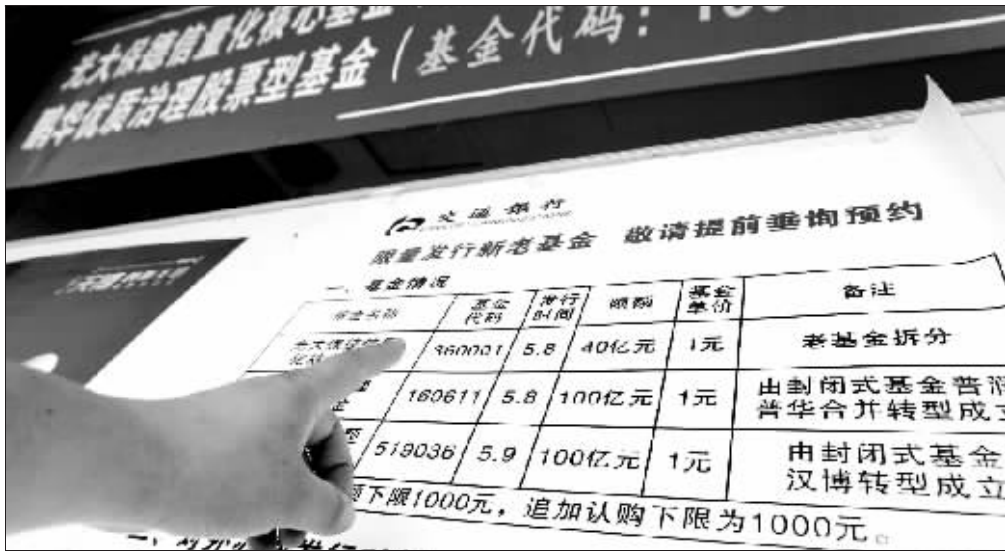 光大保德信量化核心基金
鹏华优质治理股票型基金（基金代码：
交通银行
限量发行新老基金 敬请提前垂询预约
一、基金情况
基金名称 基金代码 发行时间 额额 基金单价 备注
360001 5.8 40亿元 1元 老基金拆分
160611 5.8 100亿元 1元 由封闭式基金普润
普华合并转型成立
519036 5.9 100亿元 1元 由封闭式基金
汉博转型成立
下限1000元，追加认购下限为1000元。